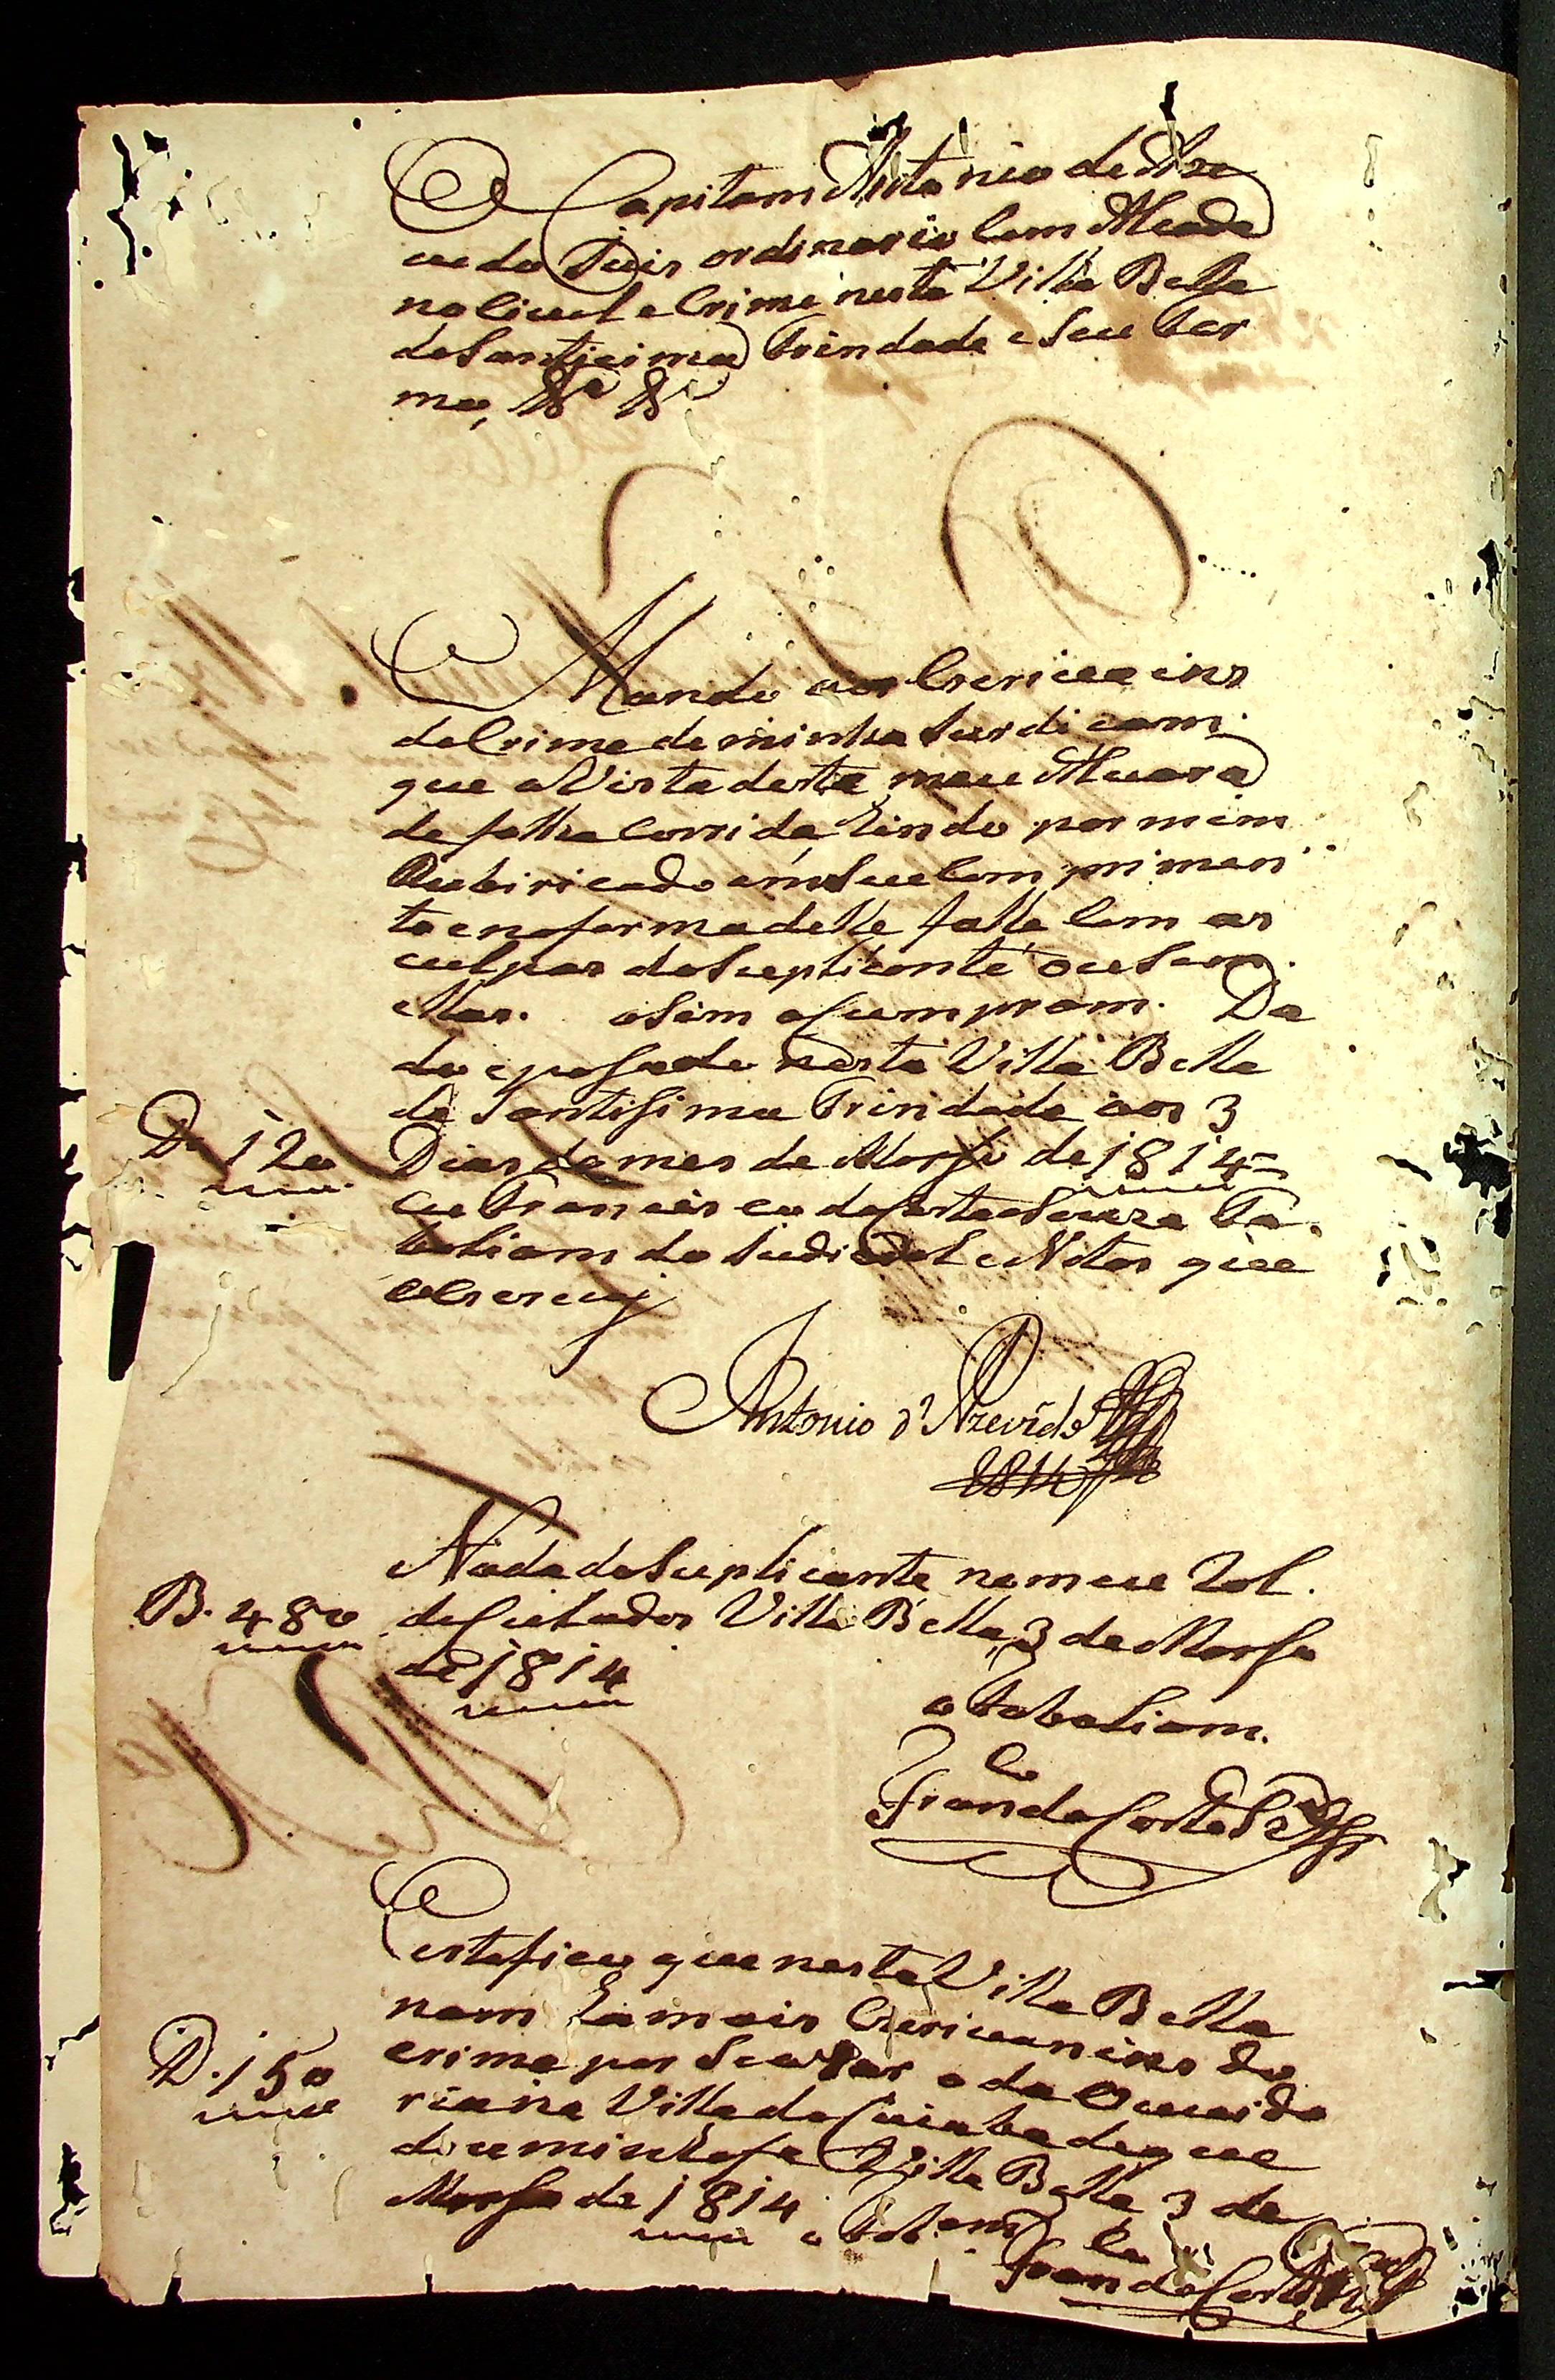 O Capitam Antonio de Aze
uedo Juis ordinario Com Alcada
no Ciuel e Crime nesta Villa Bella
da Santicima Trindade e Seu Ter
mo, &ª &ª
Mando aos Escriuains
do Crime de minha Jurdicam
que a Vista deste meu Aluara
de folha Corrida Sindo por mim
Rubiricado em Seu Comprimen
to e na forma delle falle Com as
culpas do Suplicante ou Sem
ellas. asim o Cumpram. Da
do e pasado nesta Villa Bella
da Santisima Trindade aos 3
Dª 120
Dias do mes de Março de 1814
eu Francisco da Costa Souza Ta
baliam do Judicial e Notas que
o Escreuy
Antonio d'Azevedo
1814
Nada do Suplicante no meu Rol
B. 480
de Culpados Villa Bella 3 de Março
de 1814
o Tabaliam.
Fran.co da Costa Sz.ª
Certefico que nesta Villa Bella
nam ha mais Escriuan ino do
crime por Se achar o da Ouuido
D. 150
ria na Villa do Cuiaba de que
dou minha fe Villa Bella 3 de
Março de 1814 o Tabam
Fran.co da Costa